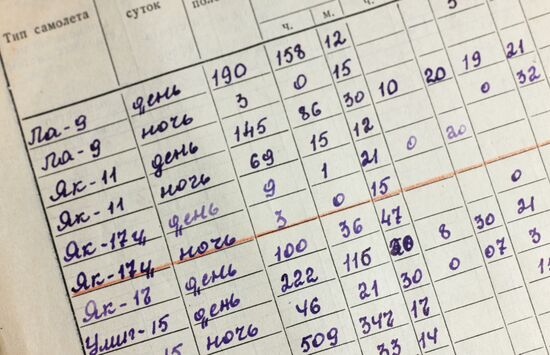 Тип самолета
суток
ч. м. ч.
Ла-9 день 190 158 12
Ла-9 ночь 3 0 15
Як-11 день 145 86 30 10 20 19 21
Як-11 ночь 69 15 12 0 32
Як-17ц день 9 1 21 0 20
Як-17ц ночь 3 0 15
Як-17 день 100 36 47 0
Умиг-15 день 222 116 8 30 21
15 ночь 46 21 30 0 07 3
509 347 17
33 14